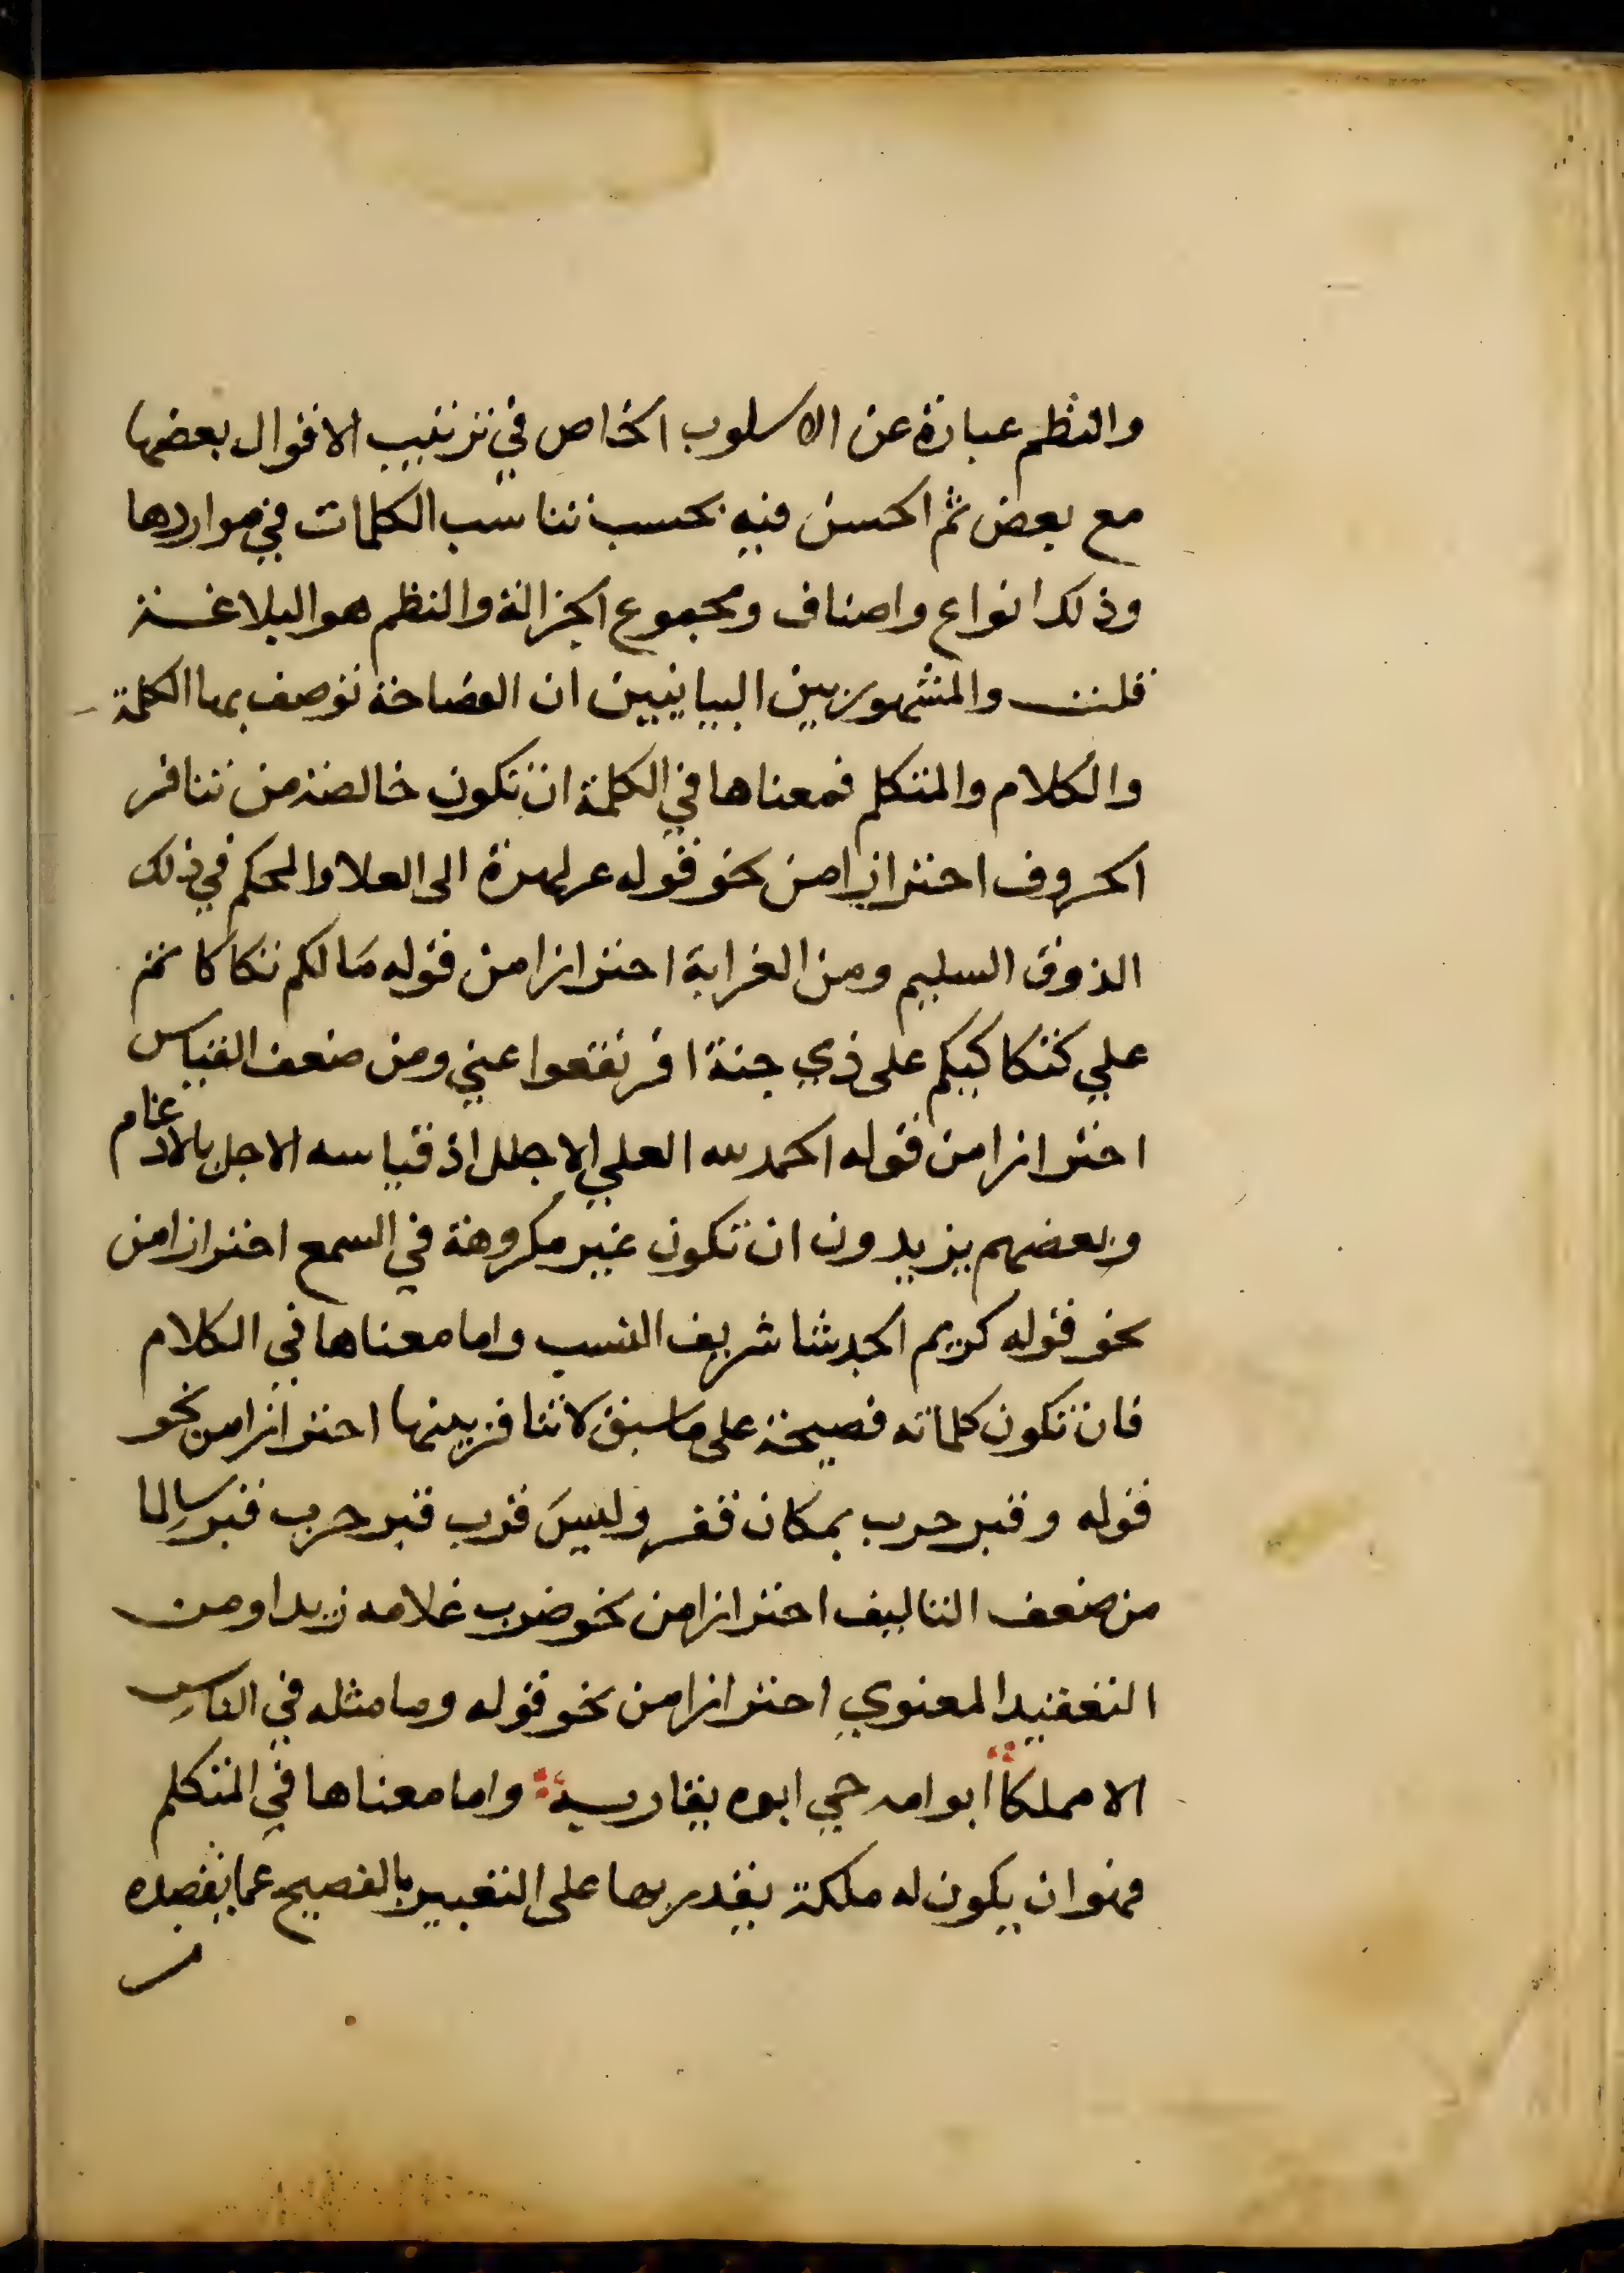 والنظم عبارة عن الاسلوب الخاص في ترتيب الاقوال بعضها
مع بعض ثم الحسن فيه بحسب تناسب الكلمات في مواردها
وذلك انواع واصناف ومجموع الجزالة والنظم هو البلاغة
قلت والمشهور بين البيانيين ان الفصاحة توصف بها الكلمة
والكلام والمتكلم فمعناها في الكلمة ان تكون خالصة من تنافر
الحروف احترازا من نحو قوله الى العلا والحكم في ذلك
الذوق السليم ومن الغرابة احترازا من قوله مالكم تكاكاتم
علي كتكاكيكم على ذي جنة افرنقعوا عني ومن ضعف القياس
احترازا من قوله الحمد لله العلي الاجلل اذ قياسه الاجل بالادغام
وبعضهم يزيدون ان تكون غير مكروهة في السمع احترازا من
نحو قوله كريم الجرشا شريف النسب واما معناها في الكلام
فان تكون كلماته فصيحة على ما سبق لا تنافر بينها احترازا من نحو
قوله وقبر حرب بمكان قفر وليس قرب قبر حرب قبر سالما
من ضعف التاليف احترازا من نحو ضرب غلامه زيدا ومن
التعقيد المعنوي احترازا من نحو قوله وما مثله في الناس
الا مملكا ابو امه حي ابوه يقاربه واما معناها في المتكلم
فهو ان يكون له ملكة يقدر بها على التعبير بالفصيح عما يقصده